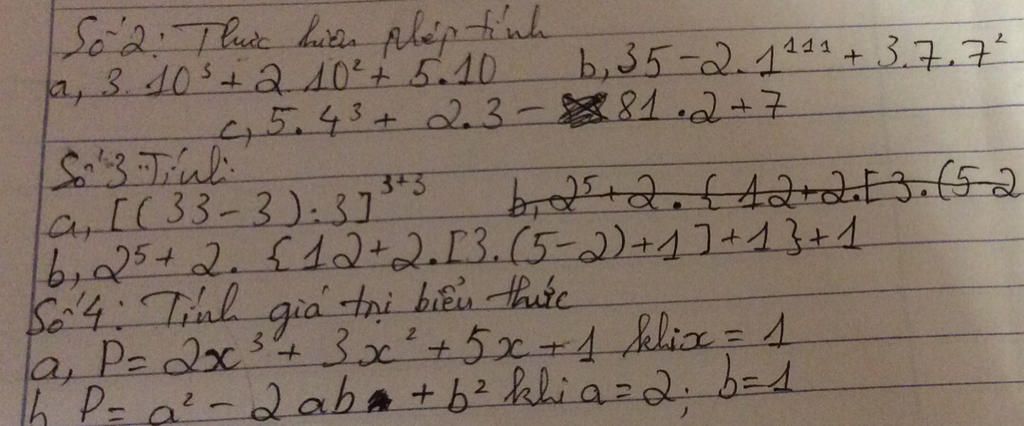 Số 2: Thực hiện phép tính
a, 3.10³ + 2.10² + 5.10 b, 35 - 2.1¹¹¹ + 3.7.7²
c, 5.4³ + 2.3 - 81.2 + 7
Số 3: Tính:
a, [(33-3):3]³⁺³ b, 2⁵ + 2.{12+2.[3.(5-2
b, 2⁵ + 2.{12+2.[3.(5-2)+1]+1}+1
Số 4: Tính giá trị biểu thức
a, P = 2x³ + 3x² + 5x + 1 khi x = 1
b, P = a² - 2ab + b² khi a = 2; b = 1